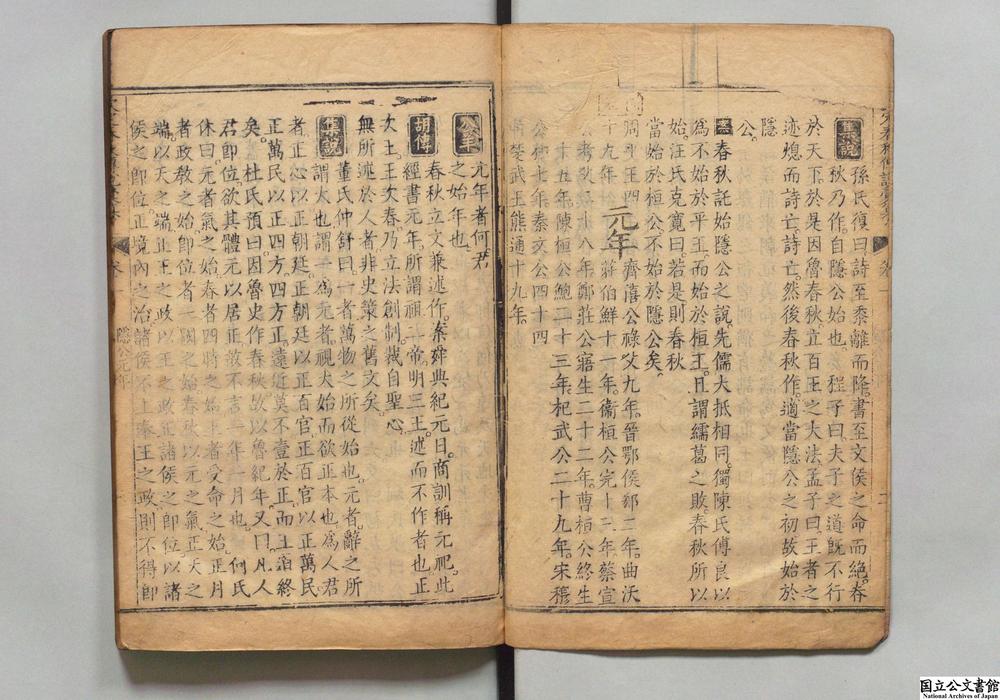 集說
孫氏復曰詩至黍離而降。書至文侯之命而絕。春
秋乃作。自隱公始也。程子曰夫子之道旣不行
於天下。於是因魯春秋立百王之大法。孟子曰王者之
迹熄而詩亡。詩亡然後春秋作。適當隱公之初。故始於
隱
公。
案
春秋託始隱公之說。先儒大抵相同。獨陳氏傅良以
為不始於平王。而始於桓王。且謂繻葛之敗。春秋所以
始。汪氏克寬曰。若是則春秋
當始於桓公。不始於隱公矣。
元年
周平王四十九年。齊僖公祿父九年。晉鄂侯郤二年。曲沃
莊伯鮮十一年。衞桓公完十三年。蔡宣
八年。鄭莊公寤生二十二年。曹桓公終生
十五年。陳桓公鮑二十三年。杞武公二十九年。宋穆
公和七年。秦文公四十四
年。楚武王熊通十九年。
公羊
元年者何。君
之始年也。
胡傳
春秋立文兼述作。案舜典紀元日。商訓稱元祀。此
經書元年。所謂祖二帝。明三王。述而不作者也。正
次王。王次春。乃立法創制。裁自聖心。
無所述於人者。非史策之舊文矣。
集說
董氏仲舒曰。一者萬物之所從始也。元者。辭之所
謂大也。謂一為元者。視大始而欲正本也。為人君
者正心以正朝廷。正朝廷以正百官。正百官以正萬民。
正萬民以正四方。四方正。遠近莫不壹於正。而王道終
矣。杜氏預曰。因魯史作春秋。故以魯紀年。又曰。凡人
君卽位。欲其體元以居正。故不言一年一月也。何氏
休曰。元者氣之始。春者四時之始。王者受命之始。正月
者政教之始。卽位者一國之始。春秋以元之氣。正天之
端。以天之端。正王之政。以王之政。正諸侯之卽位。以諸
侯之卽位。正境內之治。諸侯不上奉王之政。則不得卽
隱公元年
国立公文書館
National Archives of Japan